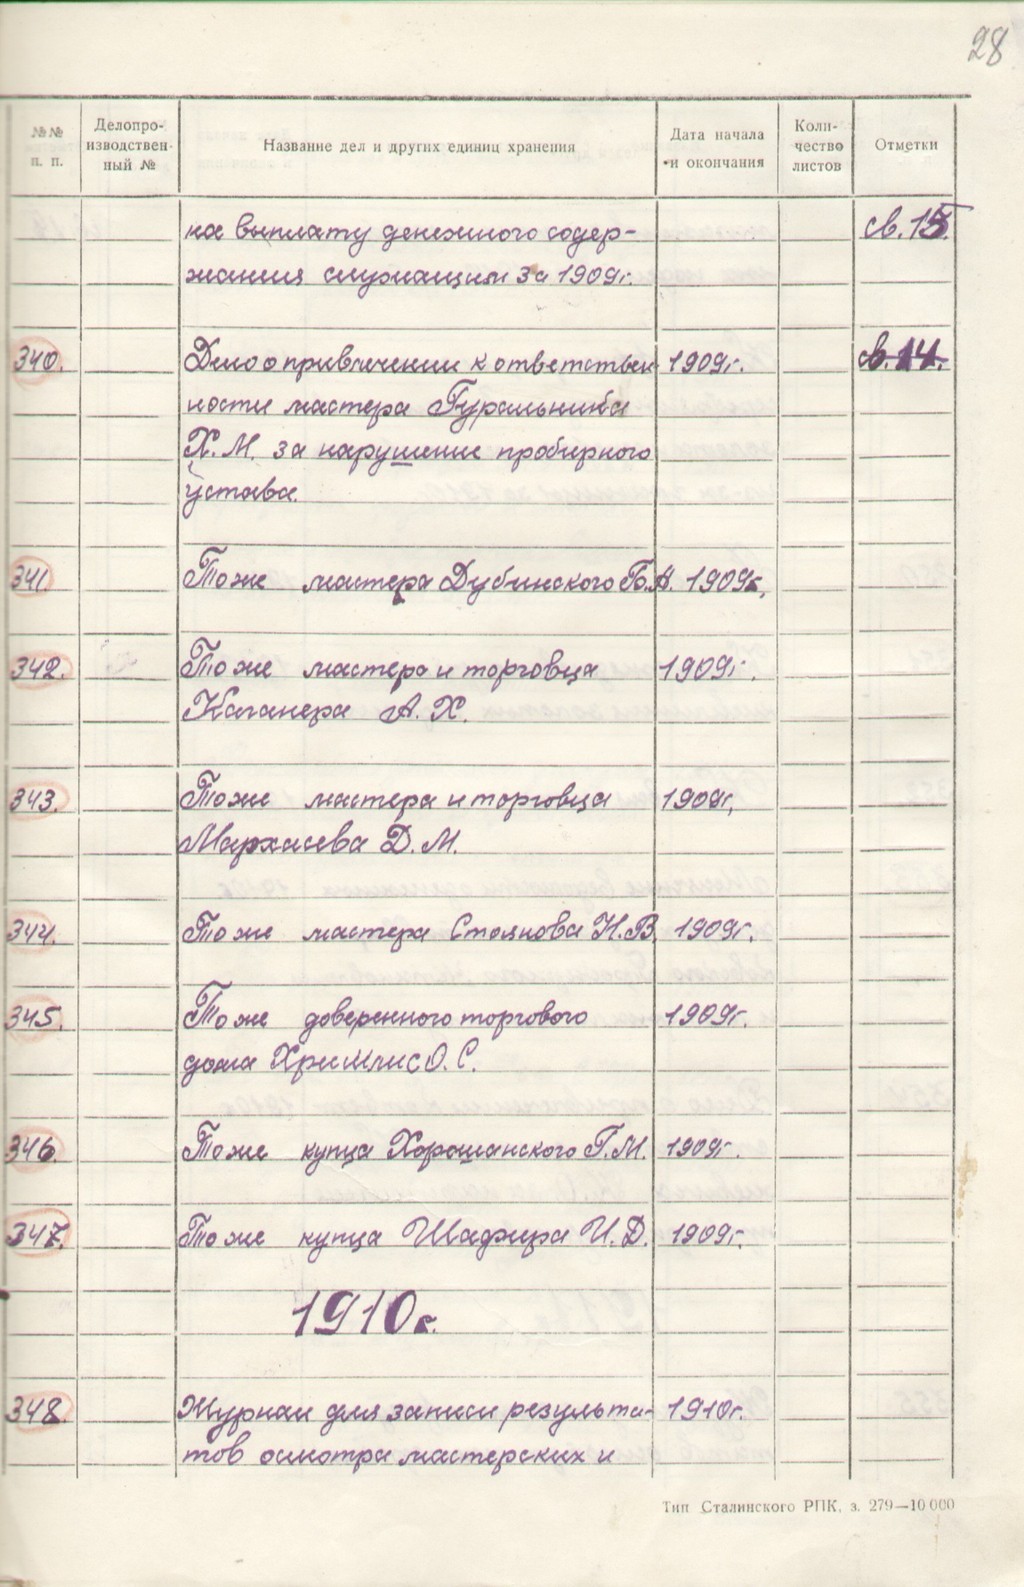 28
№№ п. п.
Делопро-
изводствен-
ный №
Название дел и других единиц хранения
Дата начала
и окончания
Коли-
чество
листов
Отметки
на выплату денежного содер- св. 15.
жания служащим за 1909г.
340. Дело о привлечении к ответствен- 1909г. св. 14.
ности мастера Гуральника
Х.М. за нарушение пробирного
устава.
341. Тоже мастера Дубинского Б.А. 1909г.
342. Тоже мастера и торговца 1909г.
Каганера А.Х.
343. Тоже мастера и торговца 1909г.
Мархасева Д.М.
344. Тоже мастера Стоянова Н.В. 1909г.
345. Тоже доверенного торгового 1909г.
дома О.С.
346. Тоже купца Хорошанского Г.М. 1909г.
347. Тоже купца Шафира И.Д. 1909г.
1910г.
348. Журнал для записи результа- 1910г.
тов осмотра мастерских и
Тип Сталинского РПК, з. 279—10 000